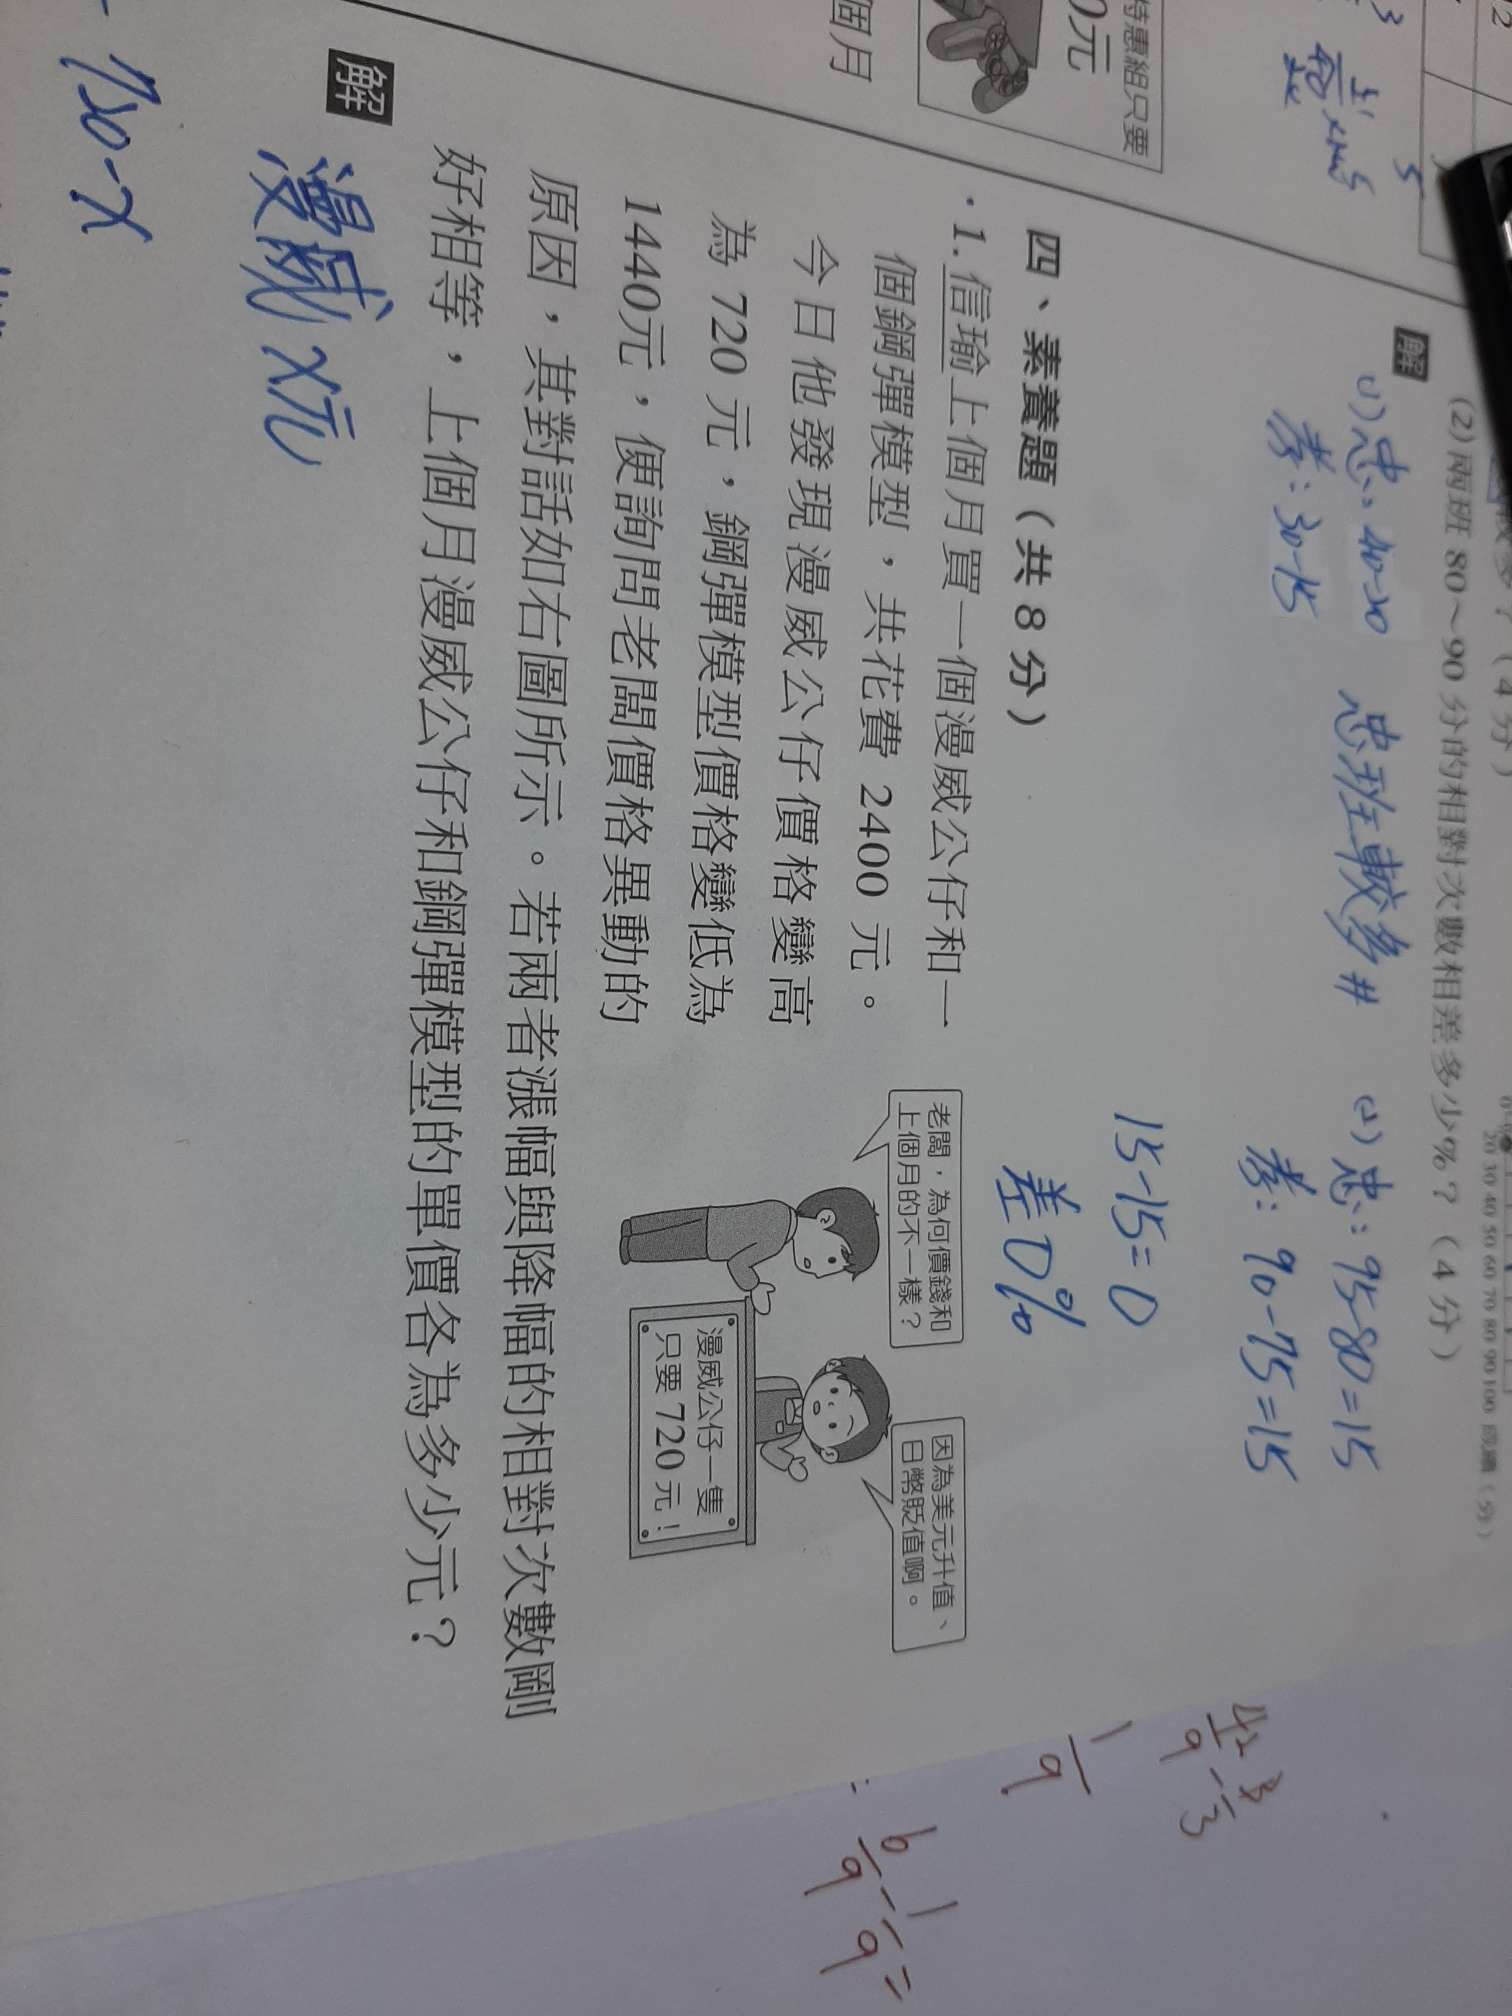 特惠組只要
0元
個月
(4分)
(2)兩班 80～90 分的相對次數相差多少%？(4分)
20 30 40 50 60 70 80 90 100 成績(分)
解
(1) 忠: 40-20
孝: 30-15
忠班較多 #
(2) 忠: 95-80=15
孝: 90-75=15
15-15=0
差0%
四、素養題(共 8 分)
1. 信瑜上個月買一個漫威公仔和一
個鋼彈模型，共花費 2400 元。
今日他發現漫威公仔價格變高
為 720 元，鋼彈模型價格變低為
1440元，便詢問老闆價格異動的
原因，其對話如右圖所示。若兩者漲幅與降幅的相對次數剛
好相等，上個月漫威公仔和鋼彈模型的單價各為多少元？
老闆，為何價錢和
上個月的不一樣？
因為美元升值、
日幣貶值啊。
漫威公仔一隻
只要 720 元！
解
漫威 x元
720-x
1/9
6/9 - 1/9 =